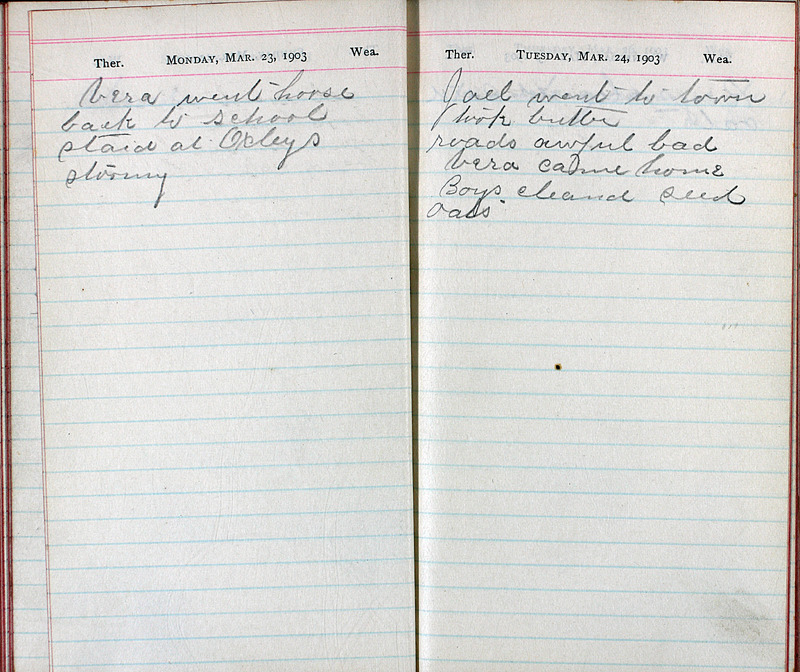 Ther. MONDAY, MAR. 23, 1903 Wea.
Vera went horse
back to school
staid at Oxleys
stormy
Ther. TUESDAY, MAR. 24, 1903 Wea.
Joel went to town
took butter
roads awful bad
Vera came home
Boys cleand seed
oats